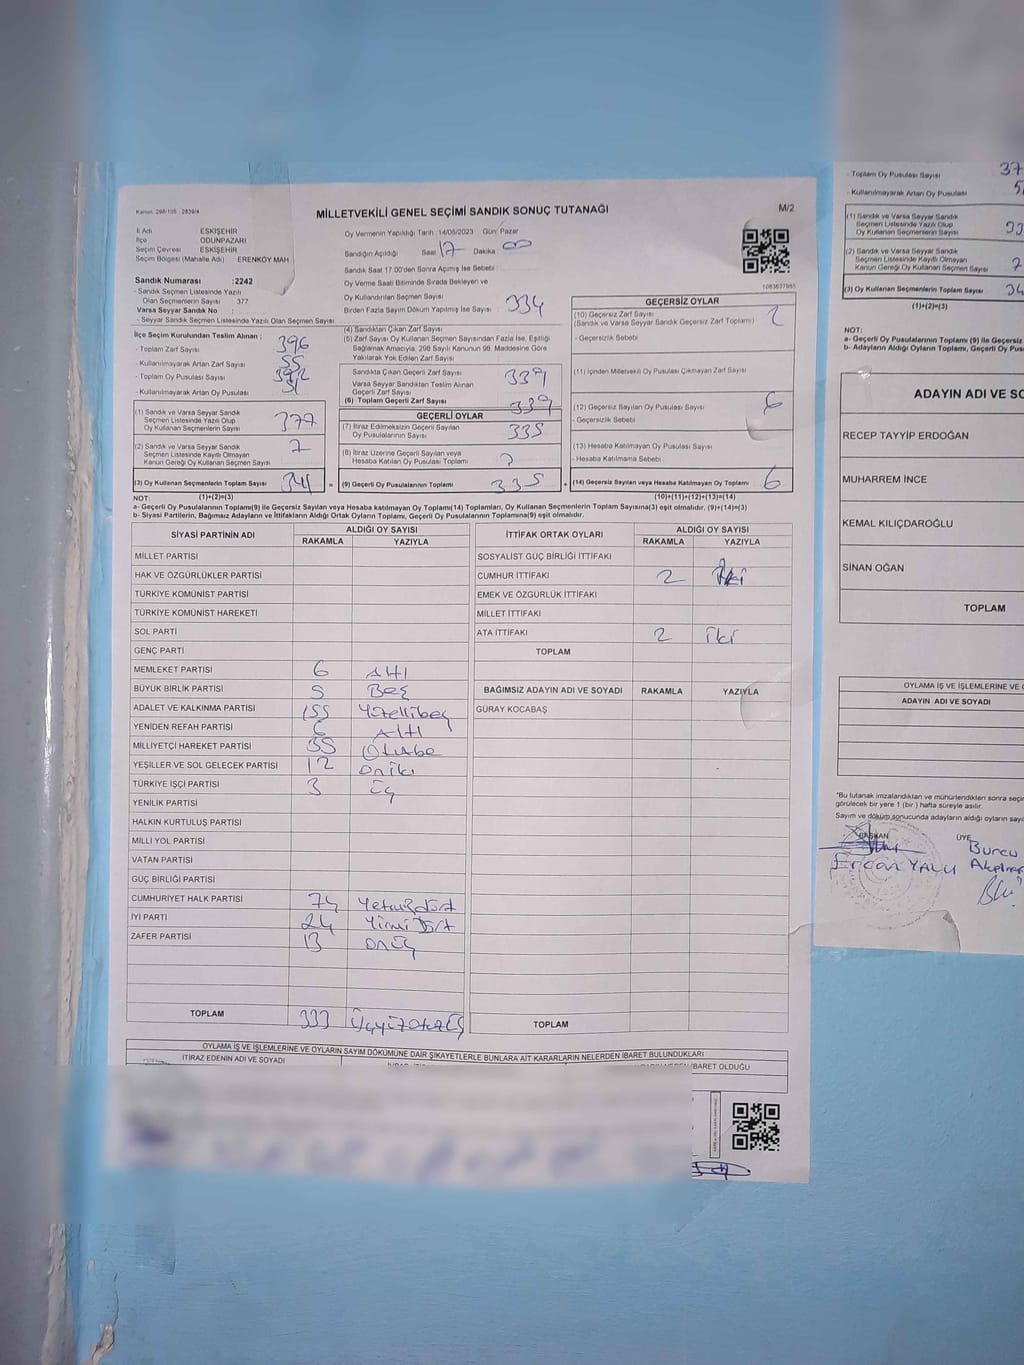 Kanun: 298/105 : 2839/4
MİLLETVEKİLİ GENEL SEÇİMİ SANDIK SONUÇ TUTANAĞI
M/2
İl Adı ESKİŞEHİR
İlçe ODUNPAZARI
Seçim Çevresi ESKİŞEHİR
Seçim Bölgesi (Mahalle Adı) ERENKÖY MAH
Sandık Numarası :2242
- Sandık Seçmen Listesinde Yazılı
Olan Seçmenlerin Sayısı : 377
Varsa Seyyar Sandık No :
- Seyyar Sandık Seçmen Listesinde Yazılı Olan Seçmen Sayısı
Oy Vermenin Yapıldığı Tarih :14/05/2023 Gün: Pazar
Sandığın Açıldığı Saat 17 Dakika 00
Sandık Saat 17:00'den Sonra Açımış İse Sebebi
Oy Verme Saati Bitiminde Sırada Bekleyen ve
Oy Kullandırılan Seçmen Sayısı
Birden Fazla Sayım Döküm Yapılmış İse Sayısı : 334
1083637985
İlçe Seçim Kurulundan Teslim Alınan :
- Toplam Zarf Sayısı 396
- Kullanılmayarak Artan Zarf Sayısı 55
- Toplam Oy Pusulası Sayısı 392
- Kullanılmayarak Artan Oy Pusulası 51
(1) Sandık ve Varsa Seyyar Sandık
Seçmen Listesinde Yazılı Olup
Oy Kullanan Seçmen Sayısı 377
(2) Sandık ve Varsa Seyyar Sandık
Seçmen Listesinde Kayıtlı Olmayan
Kanun Gereği Oy Kullanan Seçmen Sayısı
(3) Oy Kullanan Seçmenlerin Toplam Sayısı 341
(4) Sandıktan Çıkan Zarf Sayısı
(5) Zarf Sayısı Oy Kullanan Seçmen Sayısından Fazla İse, Eşitliği
Sağlamak Amacıyla, 298 Sayılı Kanunun 98. Maddesine Göre
Yakılarak Yok Edilen Zarf Sayısı
Sandıkta Çıkan Geçerli Zarf Sayısı 339
Varsa Seyyar Sandıktan Teslim Alınan
Geçerli Zarf Sayısı
(6) Toplam Geçerli Zarf Sayısı 339
GEÇERLİ OYLAR
(7) İtiraz Edilmeksizin Geçerli Sayılan
Oy Pusulalarının Sayısı 335
(8) İtiraz Üzerine Geçerli Sayılan veya
Hesaba Katılan Oy Pusulası Toplamı
(9) Geçerli Oy Pusulalarının Toplamı 335
GEÇERSİZ OYLAR
(10) Geçersiz Zarf Sayısı
(Sandık ve Varsa Seyyar Sandık Geçersiz Zarf Toplamı) 2
- Geçersizlik Sebebi
(11) İçinden Milletvekili Oy Pusulası Çıkmayan Zarf Sayısı
(12) Geçersiz Sayılan Oy Pusulası Sayısı 6
- Geçersizlik Sebebi
(13) Hesaba Katılmayan Oy Pusulası Sayısı
- Hesaba Katılmama Sebebi
(14) Geçersiz Sayılan veya Hesaba Katılmayan Oy Toplamı 6
NOT: (1)+(2)=(3)
(10)+(11)+(12)+(13)=(14)
a- Geçerli Oy Pusulalarının Toplamı(9) ile Geçersiz Sayılan veya Hesaba katılmayan Oy Toplamı(14) Toplamları, Oy Kullanan Seçmenlerin Toplam Sayısına(3) eşit olmalıdır. (9)+(14)=(3)
b- Siyasi Partilerin, Bağımsız Adayların ve İttifakların Aldığı Ortak Oyların Toplamı, Geçerli Oy Pusulalarının Toplamına(9) eşit olmalıdır.
SİYASİ PARTİNİN ADI ALDIĞI OY SAYISI
RAKAMLA YAZIYLA
MİLLET PARTİSİ
HAK VE ÖZGÜRLÜKLER PARTİSİ
TÜRKİYE KOMÜNİST PARTİSİ
TÜRKİYE KOMÜNİST HAREKETİ
SOL PARTİ
GENÇ PARTİ
MEMLEKET PARTİSİ 6 Altı
BÜYÜK BİRLİK PARTİSİ 5 Beş
ADALET VE KALKINMA PARTİSİ 155 Yüzellibeş
YENİDEN REFAH PARTİSİ 6 Altı
MİLLİYETÇİ HAREKET PARTİSİ 35
YEŞİLLER VE SOL GELECEK PARTİSİ 12 Oniki
TÜRKİYE İŞÇİ PARTİSİ 3 Üç
YENİLİK PARTİSİ
HALKIN KURTULUŞ PARTİSİ
MİLLİ YOL PARTİSİ
VATAN PARTİSİ
GÜÇ BİRLİĞİ PARTİSİ
CUMHURİYET HALK PARTİSİ 74 Yetmişdört
İYİ PARTİ 24 Yirmidört
ZAFER PARTİSİ 13 Onüç
TOPLAM 333 Üçyüzotuzüç
İTTİFAK ORTAK OYLARI ALDIĞI OY SAYISI
RAKAMLA YAZIYLA
SOSYALİST GÜÇ BİRLİĞİ İTTİFAKI
CUMHUR İTTİFAKI 2 İki
EMEK VE ÖZGÜRLÜK İTTİFAKI
MİLLET İTTİFAKI
ATA İTTİFAKI 2 iki
TOPLAM
BAĞIMSIZ ADAYIN ADI VE SOYADI RAKAMLA YAZIYLA
GÜRAY KOCABAŞ
TOPLAM
OYLAMA İŞ VE İŞLEMLERİNE VE OYLARIN SAYIM DÖKÜMÜNE DAİR ŞİKAYETLERLE BUNLARA AİT KARARLARIN NELERDEN İBARET BULUNDUKLARI
İTİRAZ EDENİN ADI VE SOYADI
İBARET OLDUĞU
- Toplam Oy Pusulası Sayısı 37
- Kullanılmayarak Artan Oy Pusulası
(1) Sandık ve Varsa Seyyar Sandık
Seçmen Listesinde Yazılı Olup
Oy Kullanan Seçmen Sayısı
(2) Sandık ve Varsa Seyyar Sandık
Seçmen Listesinde Kayıtlı Olmayan
Kanun Gereği Oy Kullanan Seçmen Sayısı
(3) Oy Kullanan Seçmenlerin Toplam Sayısı 34
(1)+(2)=(3)
NOT:
a- Geçerli Oy Pusulalarının Toplamı (9) ile Geçersiz
b- Adayların Aldığı Oyların Toplamı, Geçerli Oy Pus
ADAYIN ADI VE SO
RECEP TAYYİP ERDOĞAN
MUHARREM İNCE
KEMAL KILIÇDAROĞLU
SİNAN OĞAN
TOPLAM
OYLAMA İŞ VE İŞLEMLERİNE VE O
ADAYIN ADI VE SOYADI
"Bu tutanak imzalandıktan ve mühürlendikten sonra seçi
görülecek bir yere 1 (bir ) hafta süreyle asılır.
Sayım ve döküm sonucunda adayların aldığı oyların sayı
BAŞKAN ÜYE
Ercan YALU Burcu